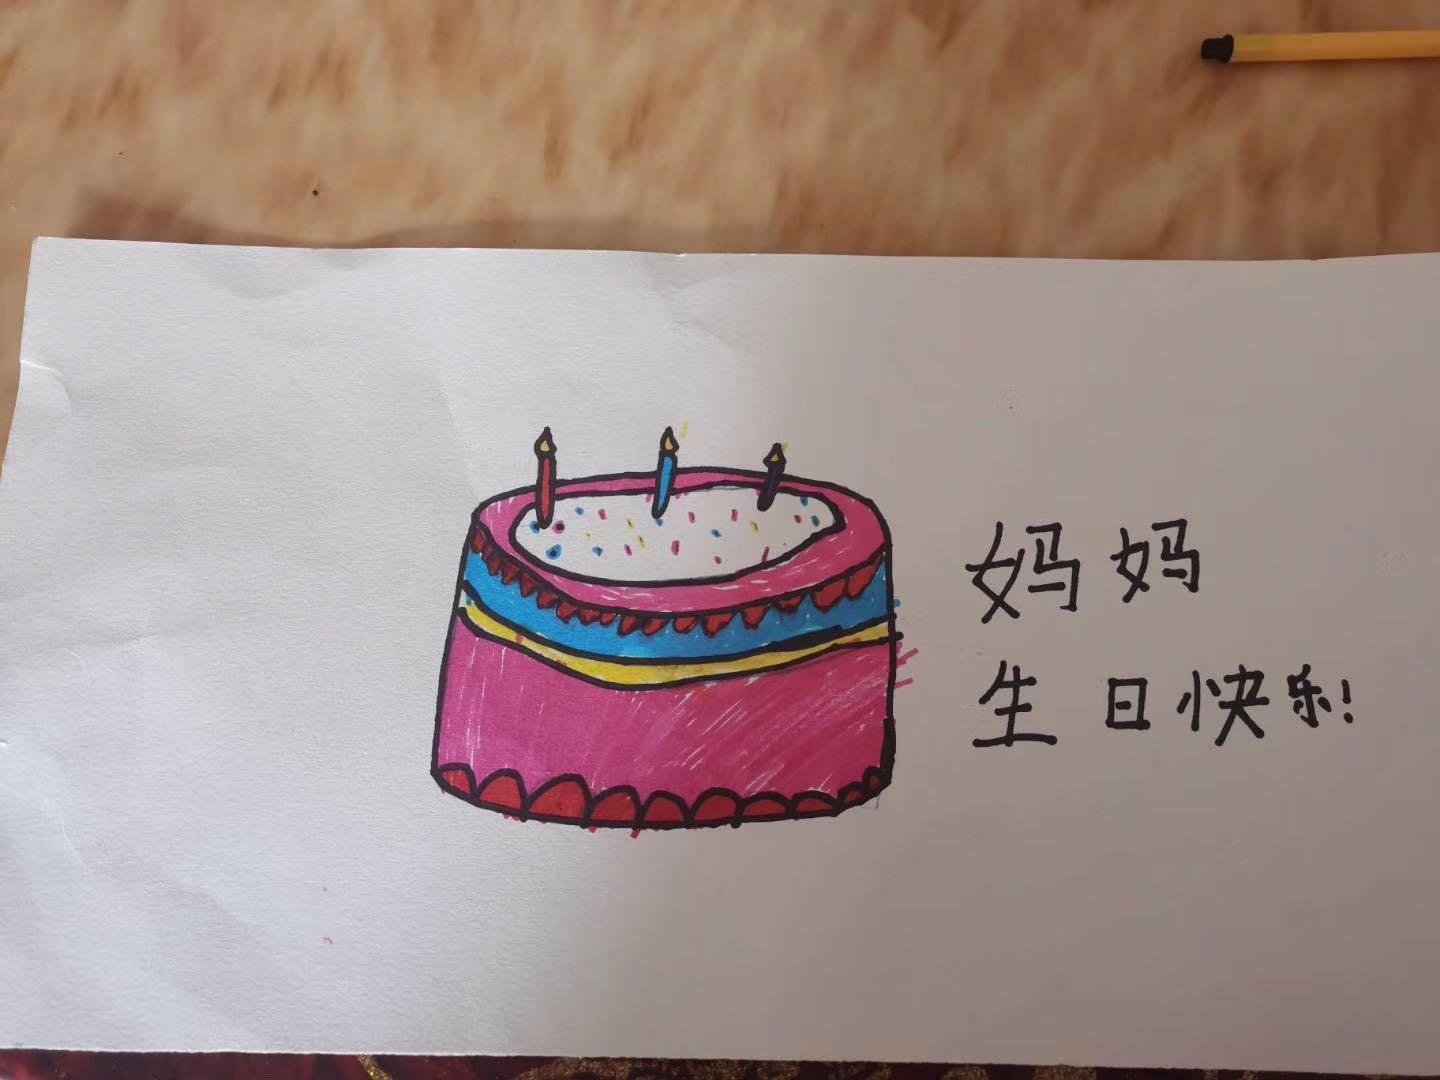 妈妈
生日快乐!